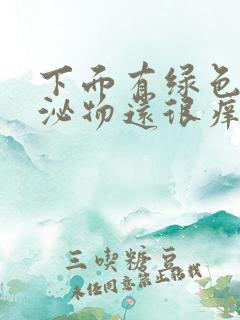 下面有绿色
泌物還很痒
三喫糖豆
未经同意禁止转载